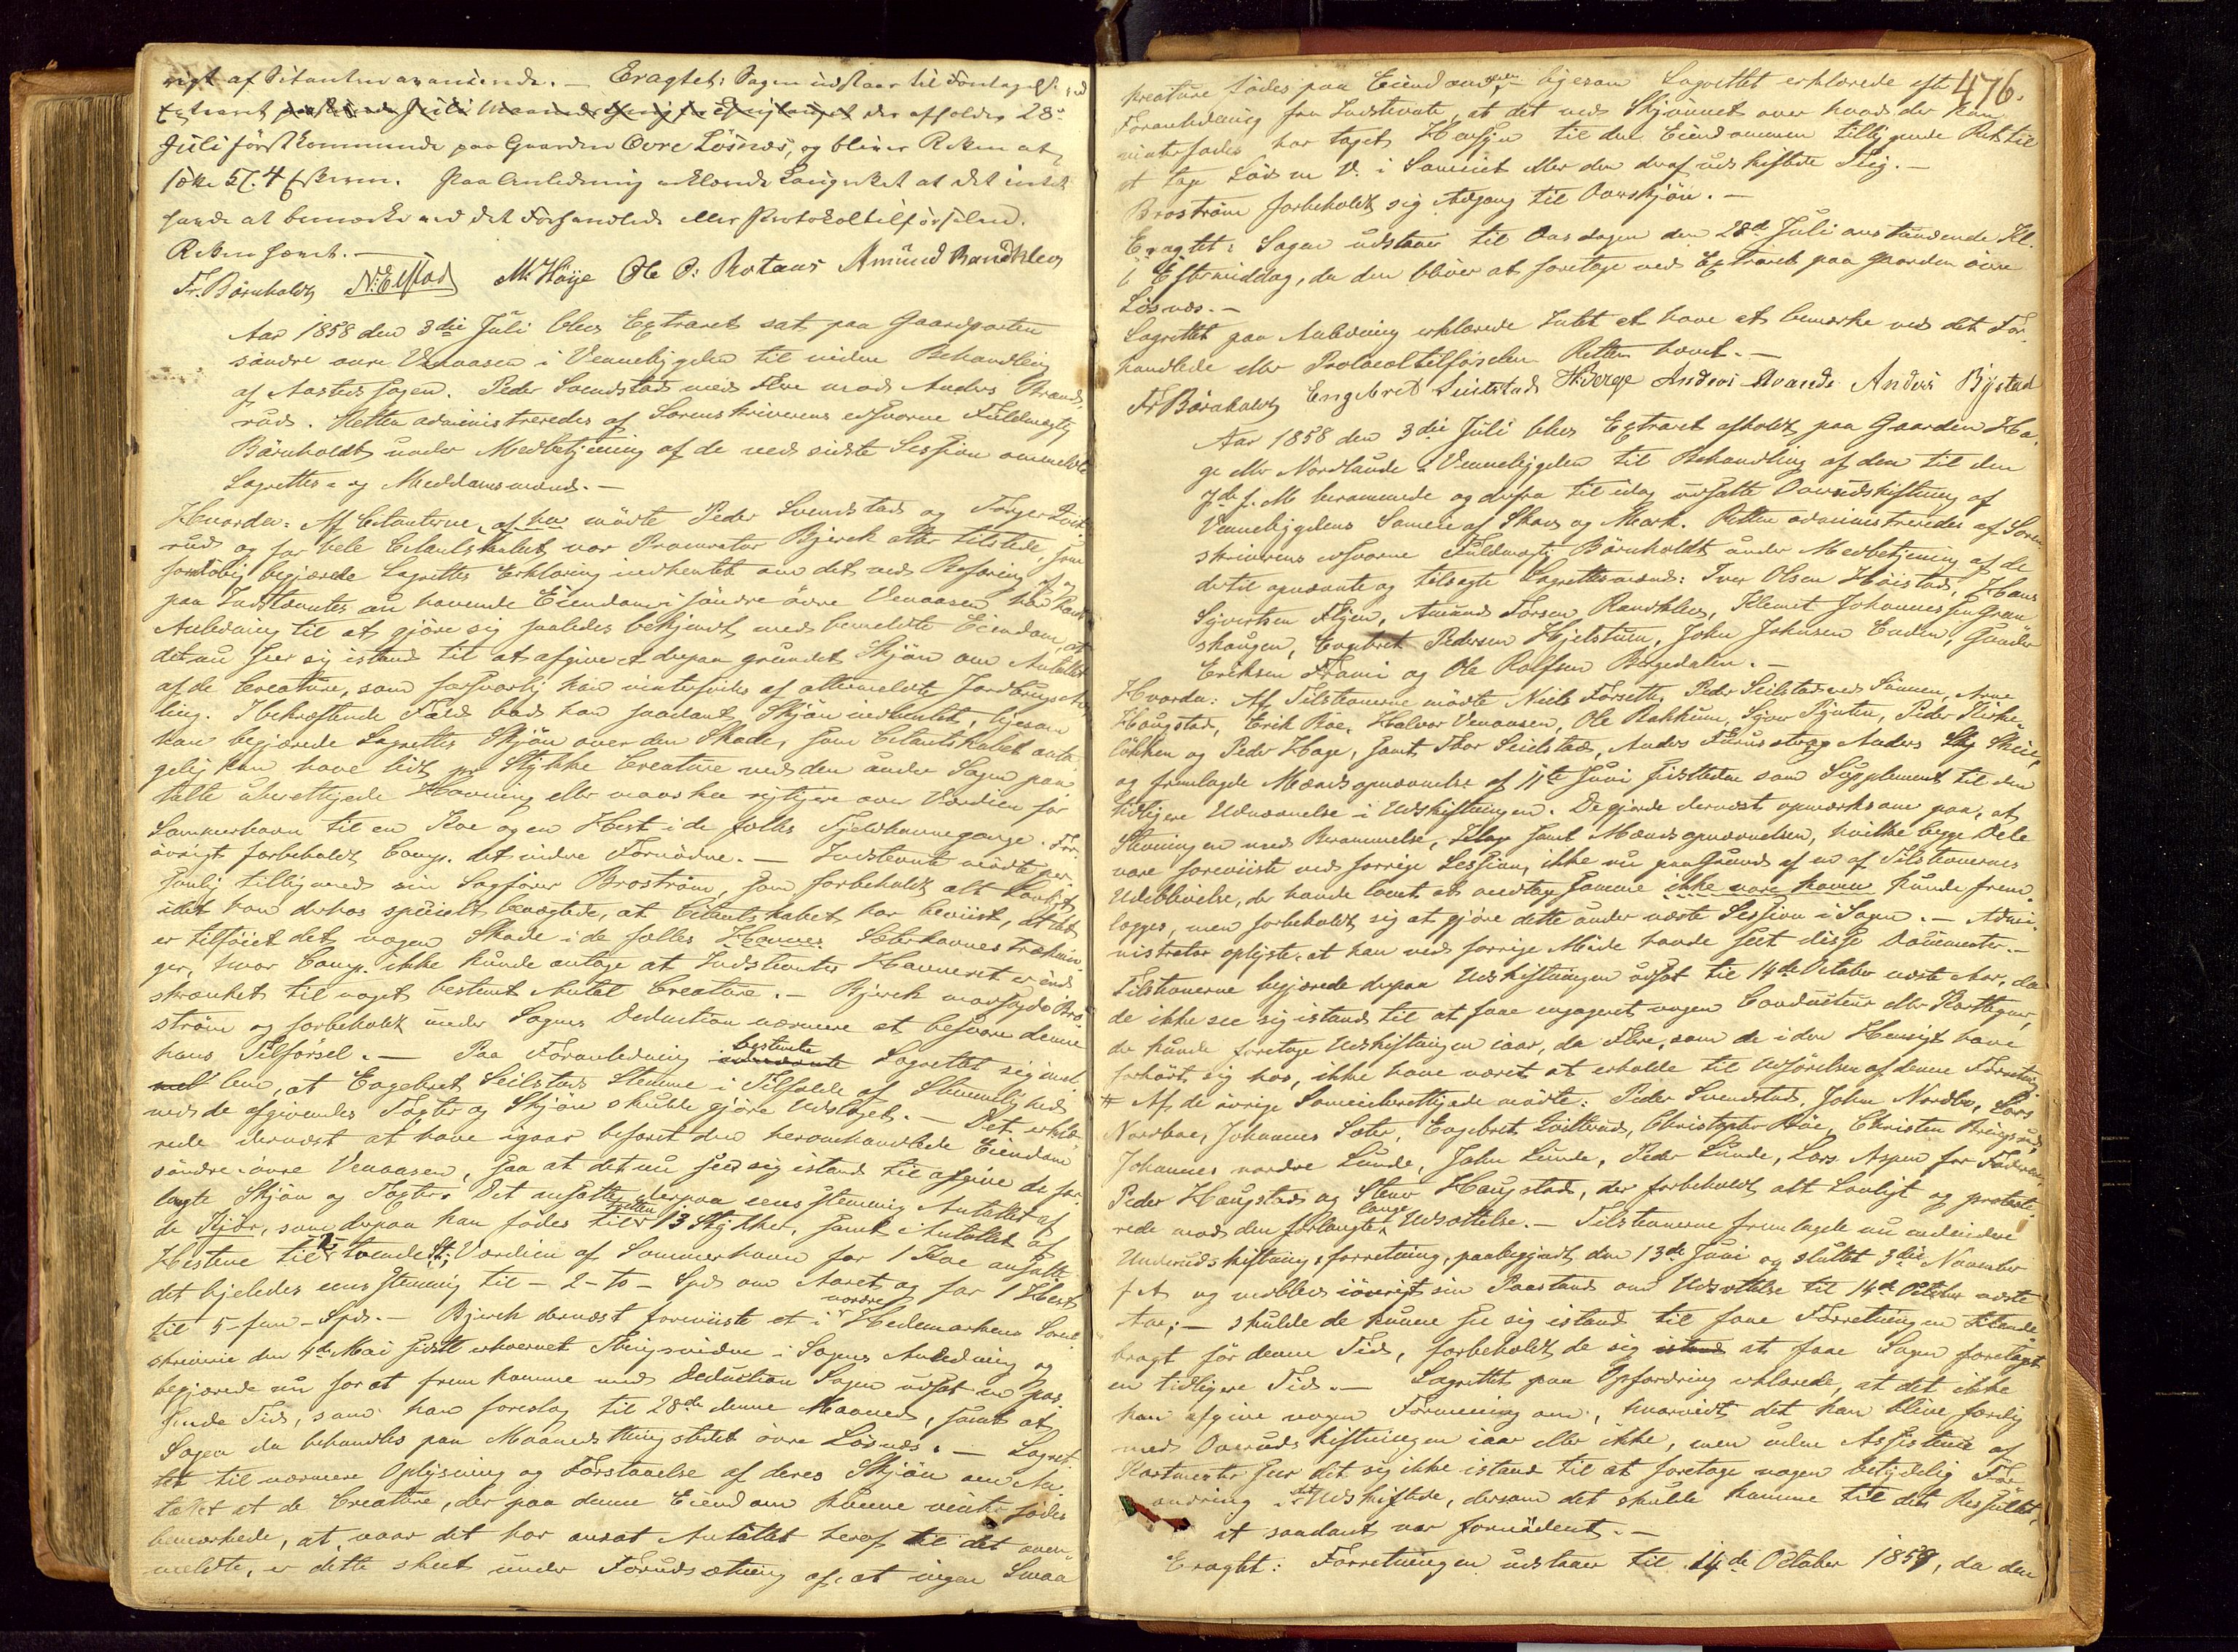 rigt af Citanterne anmeende. — Eragtet: Sagen udstaar til Foretagelse ved
Extraret der afholdes 28de
Juli förstkommende paa Gaarden Övre Lösnæs, og bliver Retten at
sætte Kl. 4 Efterm. Paa Anledning erklærede Laugretet at det intet
havde at bemærke ved det Forhandlede eller Protokoltilförselen.
Retten hævet. —
Fr. Börnholdt N. Elstad M. Höye Ole P: Rotans Amund Randklev
Aar 1858 den 3die Juli blev Extraret sat paa Gaardparten
söndre övre Venaasen i Vennebygden til videre Behandling
af Aastedssagen. Peder Svendstad med Flere mod Anders Brænd-
rud. Retten administreredes af Sorenskriverens edsvorne Fuldmægtig
Börnholdt under Medbetjening af de ved sidste Session anmeldte
Lagrettes- og Meddomsmænd. —
Hvorda: Af Citanterne mödte Peder Svendstad og Torger
rud og for hele Citantskabet var Procurator Bjerck atter tilstede, som
foreløbig begjærede Lagrettes Erklæring indhentet om det ved Befaring af og
paa Indstævntes nu havende Eiendom i söndre övre Venaasen har havt
Anledning til at gjöre sig saaledes bekjendt med bemeldte Eiendom, at
det nu seer sig istand til at afgive et derpaa grundet Skjön om Antallet
af de Creature, som forsvarlig kan vinterfödes af ottemeldte Jordbrugs
ling. I bekræftende Fald bad han saadant Skjön indhentet, ligesom
han begjærede Lagrettes Skjön over den Skade, som Citantskabet anta-
gelig kan have lidt pr Stykke Creature ved den under Sagen paa-
talte uberettigede Havning eller maaskee rigtigere over Værdien for
Sommerhavn til en Koe og en Hest i de fælles Fjeldhavnegange. For-
övrigt forbeholdt Comp. det videre Fornödne. — Indstevnte mödte per-
sonlig tilligemed sin Sagförer Broström, som forbeholdt alt Lovligt,
idet han derhos specielt benægtede, at Citantskabet har beviist, at det
er tilföiet det nogen Skade i de fælles Havne Sæterhavnestrækni-
ger, hvor Comp. ikke kunde antage at Indstevntes Havneret er ind-
skrænket til noget bestemt Antal Creature. — Bjerck modsagde Bro-
ström og forbeholdt under Sagens Deduction nærmere at besvare denne
hans Tilförsel. — Paa Foranledning bestemte Lagrettet sig imel-
lem, at Engebret Seilstads Stemme i Tilfælde af Stemmelighed
ved de afgivendes Taxter og Skjön skulde gjöre Udslaget. — Det erklæ-
rede dernæst at have igaar befaret den heromhandlede Eiendom
söndre övre Venaasen, saa at det nu seer sig istand til afgive de for-
langte Skjön og Taxter. Det ansatte derpaa eensstemmig Antallet af
de Kjör, som derpaa kan födes til 13 tretten Stykker, samt Antallet af
Hestene til 2 tvende St; Værdien af Sommerhavn for 1 Koe ansatte
det ligeledes eensstemmig til — 2 - to — Spd. om Aaret og for 1 Hest
til 5 - fem - Spd. — Bjerck dernæst foreviiste et i nordre Hedemarkens Soren-
skriverie den 4de Mai sidste erhvervet Thingsvidne i Sagens Anledning og
begjærede nu for at fremkomme med Deduction Sagen udsat en pas-
sende Tid, som han foreslog til 28de denne Maaned, samt at
Sagen da behandles paa Maanedsthingstedet övre Lösnæs. — Lagret-
tet til nærmere Oplysning og Forstaaelse af deres Skjön om An-
tallet at de Creature, der paa denne Eiendom kunne vinterfödes
bemærkede, at naar det har ansat Antallet heraf til det oven-
meldte, er dette skeet under Forudsætning af, at ingen Smaa
476.
kreature födes paa Eiendommen, ligesom Lagrettet erklærede efter
Foranledning fra Indstevnte, at det ved Skjönnet over hvad der kan
vinterfödes har taget Hensyn til den Eiendommen tilliggende Ret til
at tage Löv m. V. i Sameiet eller der deraf udskiftede Teig. —
Broström forbeholdt sig Adgang til Overskjön. —
Eragtet: Sagen udstaaer til Onsdagen den 28de Juli anstundende Kl.
6 Eftermiddag, da den bliver at foretage ved Extraret paa Gaarden övre
Lösnæs. —
Lagrettet paa Anledning erklærede Intet at have at bemærke ved det For-
handlede eller Protocoltilförselen. Retten hævet. —
Fr Börnholdt Engebret Seielstad H. Berge Anders Avande Anders Bystad
Aar 1858 den 3die Juli blev Extraret afholdt paa Gaarden Ha-
ge eller Nordlunde i Vennebygden til Behandling af den til den
7de f. M. berammede og derfra til idag udsatte Overudskiftning af
Vennebygdens Sameie af Skov og Mark. Retten administreredes af Soren-
skriverens edsvorne Fuldmægtig Börnholdt under Medbetjening af de
dertil opnævnte og tilsagte Lagrettesmænd: Iver Olsen Höistad, Hans
Syvertsen Flyen, Amund Torsen Randklev, Klemet Johannessen Gran-
skougen, Engebret Pedersen Hjelstuen, John Johnsen Enden, Gunder
Eriksen Stami og Ole Rolfsen Bergedalen. —
Hvorda: Af Tilstævnerne mödte Niels Forseth, Peder Seilstad ved Sönnen, Arne
Haugstad, Erik Roe, Halvor Venaasen, Ole Bakkum, Syver Pynten, Peder Kirke-
lökken og Peder Hage, samt Thor Seielstad, Anders Furusstog Anders Skei,
og fremlagde Mændsopnævnelse af 11te Juni sidstleden som Supplement til den
tidligere Udnævnelse i Udskiftningen. De gjorde dernæst opmærksom paa, at
Stevningen med Berammelse, samt Mændsopnævnelsen, hvilke begge Dele
vare foreviiste ved forrige Session, ikke nu paa Grund af en af Tilstævnernes
Udeblivelse, der havde lovet at medtage samme ikke vare kunde frem-
lægges, men forbeholdt sig at gjöre dette under næste Session i Sagen. — Admi-
nistrator oplyste, at han ved forrige Möde havde seet disse Documenter. —
Tilstævnerne begjærede derpaa Udskiftningen udsat til 14de October næste Aar, da
de ikke see sig istand til at faae engageret nogen Conducteur eller Karttegner,
der kunde foretage Udskiftningen iaar, da Flere, som de i den Hensigt have
forhört sig hos, ikke have været at erholde til Udförelsen af denne Forretning.
# Af de övrige Sameieberettigede mödte: Peder Svendstad, John Nordbo, Lars
Nordboe, Johannes Sæter, Engebret Zvitterud, Christopher Böe, Christen Bringerud,
Johannes nordre Lunde, John Lunde, Peder Lunde, Lars Aspen for Faderen,
Peder Haugstad og Stener Haugstad, der forbeholdt alt Lovligt og proteste-
rede mod den forlangte lange Udsættelse. — Tilstævnerne fremlagde nu endvidere
Underudskiftningsforretning, paabegyndt den 13de Juni og sluttet 3die November
f A og nedlagde iövrigt sin Paastand om Udsættelse til 14de October næste
Aar; — skulde de kunne see sig istand til faae Forretningen tilende-
bragt för denne Tid, forbeholdt de sig at faae Sagen foretaget
en tidligere Tid. — Lagrettet paa Opfordring erklærede, at det ikke
kan afgive nogen Formening om, hvorvidt det kan blive færdig
med Overudskiftningen iaar eller ikke, men uden Assistence af
Kartmester seer det sig ikke istand til at foretage nogen betydelig For-
andring i det Udskiftede, dersom det skulde komme til det Resultat,
at saadant var fornödent. —
Eragtet: Forretningen udstaaer til 14de October 1859, da den